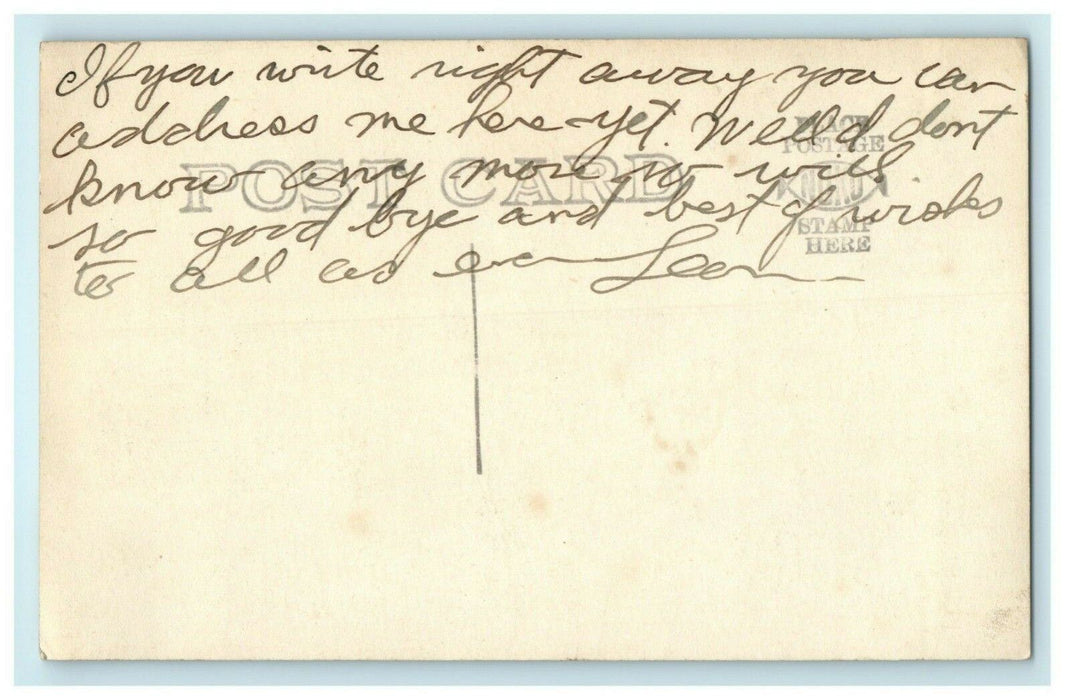 If you write right away you can
address me here yet. Well I dont
know any more so will
so good bye and best of wishes
to all as ever Leon
POST CARD
PLACE
POSTAGE
STAMP
HERE